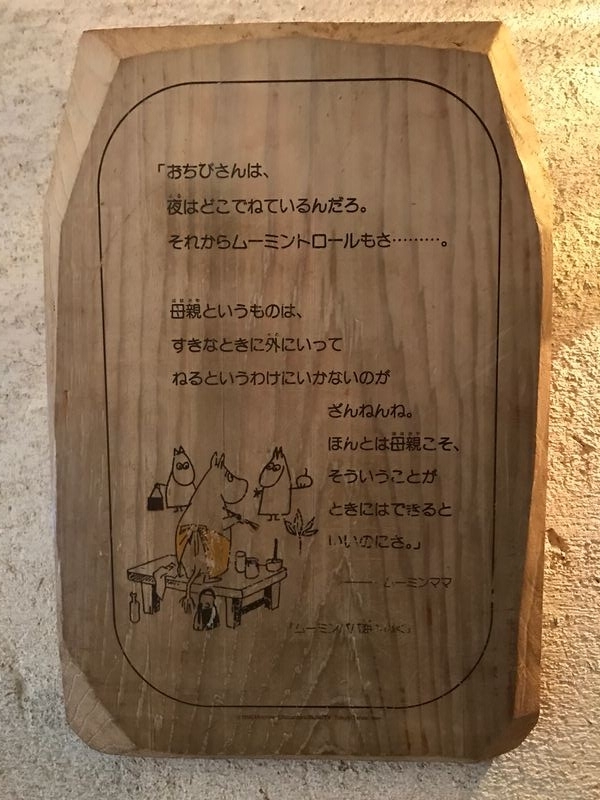 「おちびさんは、
夜はどこでねているんだろ。
それからムーミントロールもさ………。
母親というものは、
すきなときに外にいって
ねるというわけにいかないのが
ざんねんね。
ほんとは母親こそ、
そういうことが
ときにはできると
いいのにさ。」
―― ムーミンママ
『ムーミンパパ海へいく』